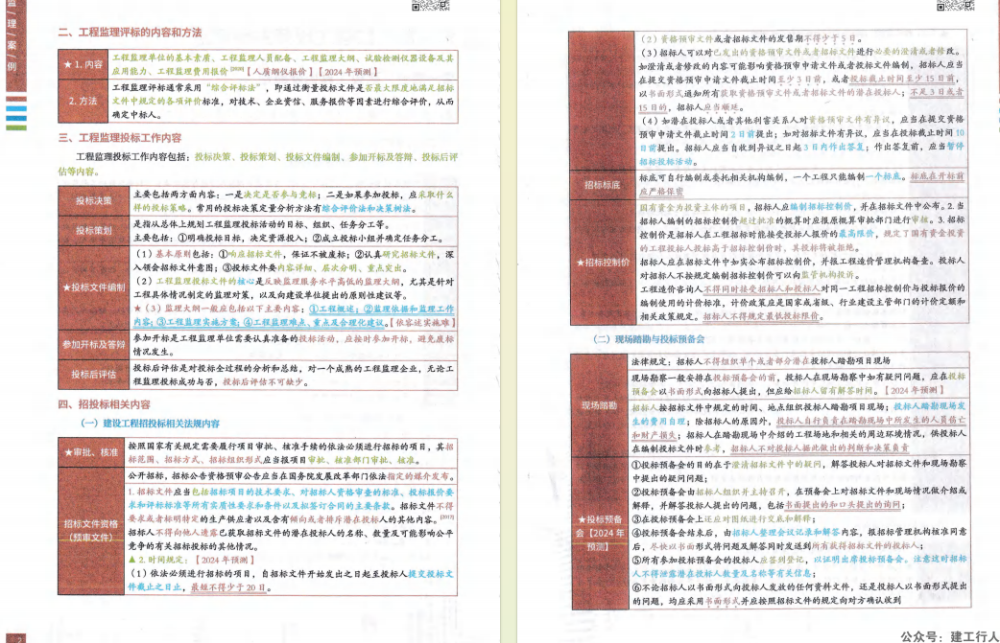 管
理
案
例
二、工程监理评标的内容和方法
★1.内容
工程监理单位的基本素质、工程监理人员配备、工程监理大纲、试验检测仪器设备及其
应用能力、工程监理费用报价【人质钢仪报价】【2024年预测】
2.方法
工程监理评标通常采用“综合评标法”，即通过衡量投标文件是否最大限度地满足招标
文件中规定的各项评价标准，对技术、企业资信、服务报价等因素进行综合评价，从而
确定中标人。
三、工程监理投标工作内容
工程监理投标工作内容包括：投标决策、投标策划、投标文件编制、参加开标及答辩、投标后评
估等内容。
投标决策
主要包括两方面内容：一是决定是否参与竞标；二是如果参加投标，应采取什么
样的投标策略。常用的投标决策定量分析方法有综合评价法和决策树法。
投标策划
是指从总体上规划工程监理投标活动的目标、组织、任务分工等。
主要包括：①明确投标目标，决定资源投入；②成立投标小组并确定任务分工。
★投标文件编制
（1）基本原则包括：①响应招标文件，保证不被废标；②认真研究招标文件，深
入领会招标文件意图；③投标文件要内容详细、层次分明、重点突出。
（2）工程监理投标文件的核心是反映监理服务水平高低的监理大纲，尤其是针对
工程具体情况制定的监理对策，以及向建设单位提出的原则性建议等。
★（3）监理大纲一般应包括以下主要内容：①工程概述；②监理依据和监理工作
内容；③工程监理实施方案；④工程监理难点、重点及合理化建议。【依容述实施难】
参加开标及答辩
参加开标是工程监理单位需要认真准备的投标活动，应按时参加开标，避免废标
情况发生。
投标后评估
投标后评估是对投标全过程的分析和总结，对一个成熟的工程监理企业，无论工
程监理投标成功与否，投标后评估不可缺少。
四、招投标相关内容
（一）建设工程招投标相关法规内容
★审批、核准
按照国家有关规定需要履行项目审批、核准手续的依法必须进行招标的项目，其招
标范围、招标方式、招标组织形式应当报项目审批、核准部门审批、核准。
招标文件资格
（预审文件）
公开招标，招标公告资格预审公告应当在国务院发展改革部门依法指定的媒介发布。
1.招标文件应当包括招标项目的技术要求、对招标人资格审查的标准、投标报价要
求和评标标准等所有实质性要求和条件以及拟签订合同的主要条款。招标文件不得
要求或者标明特定的生产供应者以及含有倾向或者排斥潜在投标人的其他内容。
招标人不得向他人透露已获取招标文件的潜在投标人的名称、数量及可能影响公平
竞争的有关招标投标的其他情况。
▲2.时间规定：【2024年预测】
（1）依法必须进行招标的项目，自招标文件开始发出之日起至投标人提交投标文
件截止之日止，最短不得少于20日。
（2）资格预审文件或者招标文件的发售期不得少于5日。
（3）招标人可以对已发出的资格预审文件或者招标文件进行必要的澄清或者修改。
如澄清或者修改的内容可能影响资格预审申请文件或者投标文件编制，招标人应当
在提交资格预审申请文件截止时间至少3日前，或者投标截止时间至少15日前，
以书面形式通知所有获取资格预审文件或者招标文件的潜在投标人；不足3日或者
15日的，招标人应当顺延。
（4）如潜在投标人或者其他利害关系人对资格预审文件有异议，应当在提交资格
预审申请文件截止时间2日前提出；如对招标文件有异议，应当在投标截止时间10
日前提出。招标人应当自收到异议之日起3日内作出答复；作出答复前，应当暂停
招标投标活动。
招标标底
标底可自行编制或委托相关机构编制，一个工程只能编制一个标底。标底在开标前
应严格保密
★招标控制价
国有资金为投资主体的项目，招标人应编制招标控制价，并在招标文件中公布。2.当
招标人编制的招标控制价超过批准的概算时应报原概算审批部门进行审核。3.招标
控制价是招标人在工程招标时能接受投标人报价的最高限价，规定了国有资金投资
的工程投标人投标高于招标控制价时，其投标将被拒绝。
招标人应在招标文件中如实公布招标控制价，并报工程造价管理机构备查。投标人
对招标人不按规定编制招标控制价可以向监管机构投诉。
工程造价咨询人不得同时接受招标人和投标人对同一工程招标控制价与投标报价的
编制使用的计价标准，计价政策应是国家或省级、行业建设主管部门的计价定额和
相关政策规定。招标人不得规定最低投标限价。
（二）现场踏勘与投标预备会
现场踏勘
法律规定：招标人不得组织单个或者部分潜在投标人踏勘项目现场
现场勘察一般安排在投标预备会的前，投标人在现场勘察中如有疑问问题，应在投标
预备会以书面形式向招标人提出，但应给招标人留有解答时间。【2024年预测】
招标人按招标文件中规定的时间、地点组织投标人踏勘项目现场；投标人踏勘现场发
生的费用自理；除招标人的原因外，投标人自行负责在踏勘现场中所发生的人员伤亡
和财产损失；招标人在踏勘现场中介绍的工程场地和相关的周边环境情况，供投标人
在编制投标文件时参考，招标人不对投标人据此做出的判断和决策负责
★投标预备
会【2024年
预测】
①投标预备会的目的在于澄清招标文件中的疑问，解答投标人对招标文件和现场勘察
中提出的疑问问题；
②投标预备会由招标人组织并主持召开，在预备会上对招标文件和现场情况做介绍或
解释，并解答投标人提出的问题，包括书面提出的和口头提出的询问；
③在投标预备会上还应对图纸进行交底和解释；
④投标预备会结束后，由招标人整理会议记录和解答内容，报招标管理机构核准同意
后，尽快以书面形式将问题及解答同时发送到所有获得招标文件的投标人；
⑤所有参加投标预备会的投标人应签到登记，以证明出席投标预备会。注意这时招标
人不得泄露潜在投标人数量及名称等有关信息；
⑥不论招标人以书面形式向投标人发放的任何资料文件，还是投标人以书面形式提出
的问题，均应采用书面形式并应按照招标文件的规定向对方确认收到
公众号：建工行人